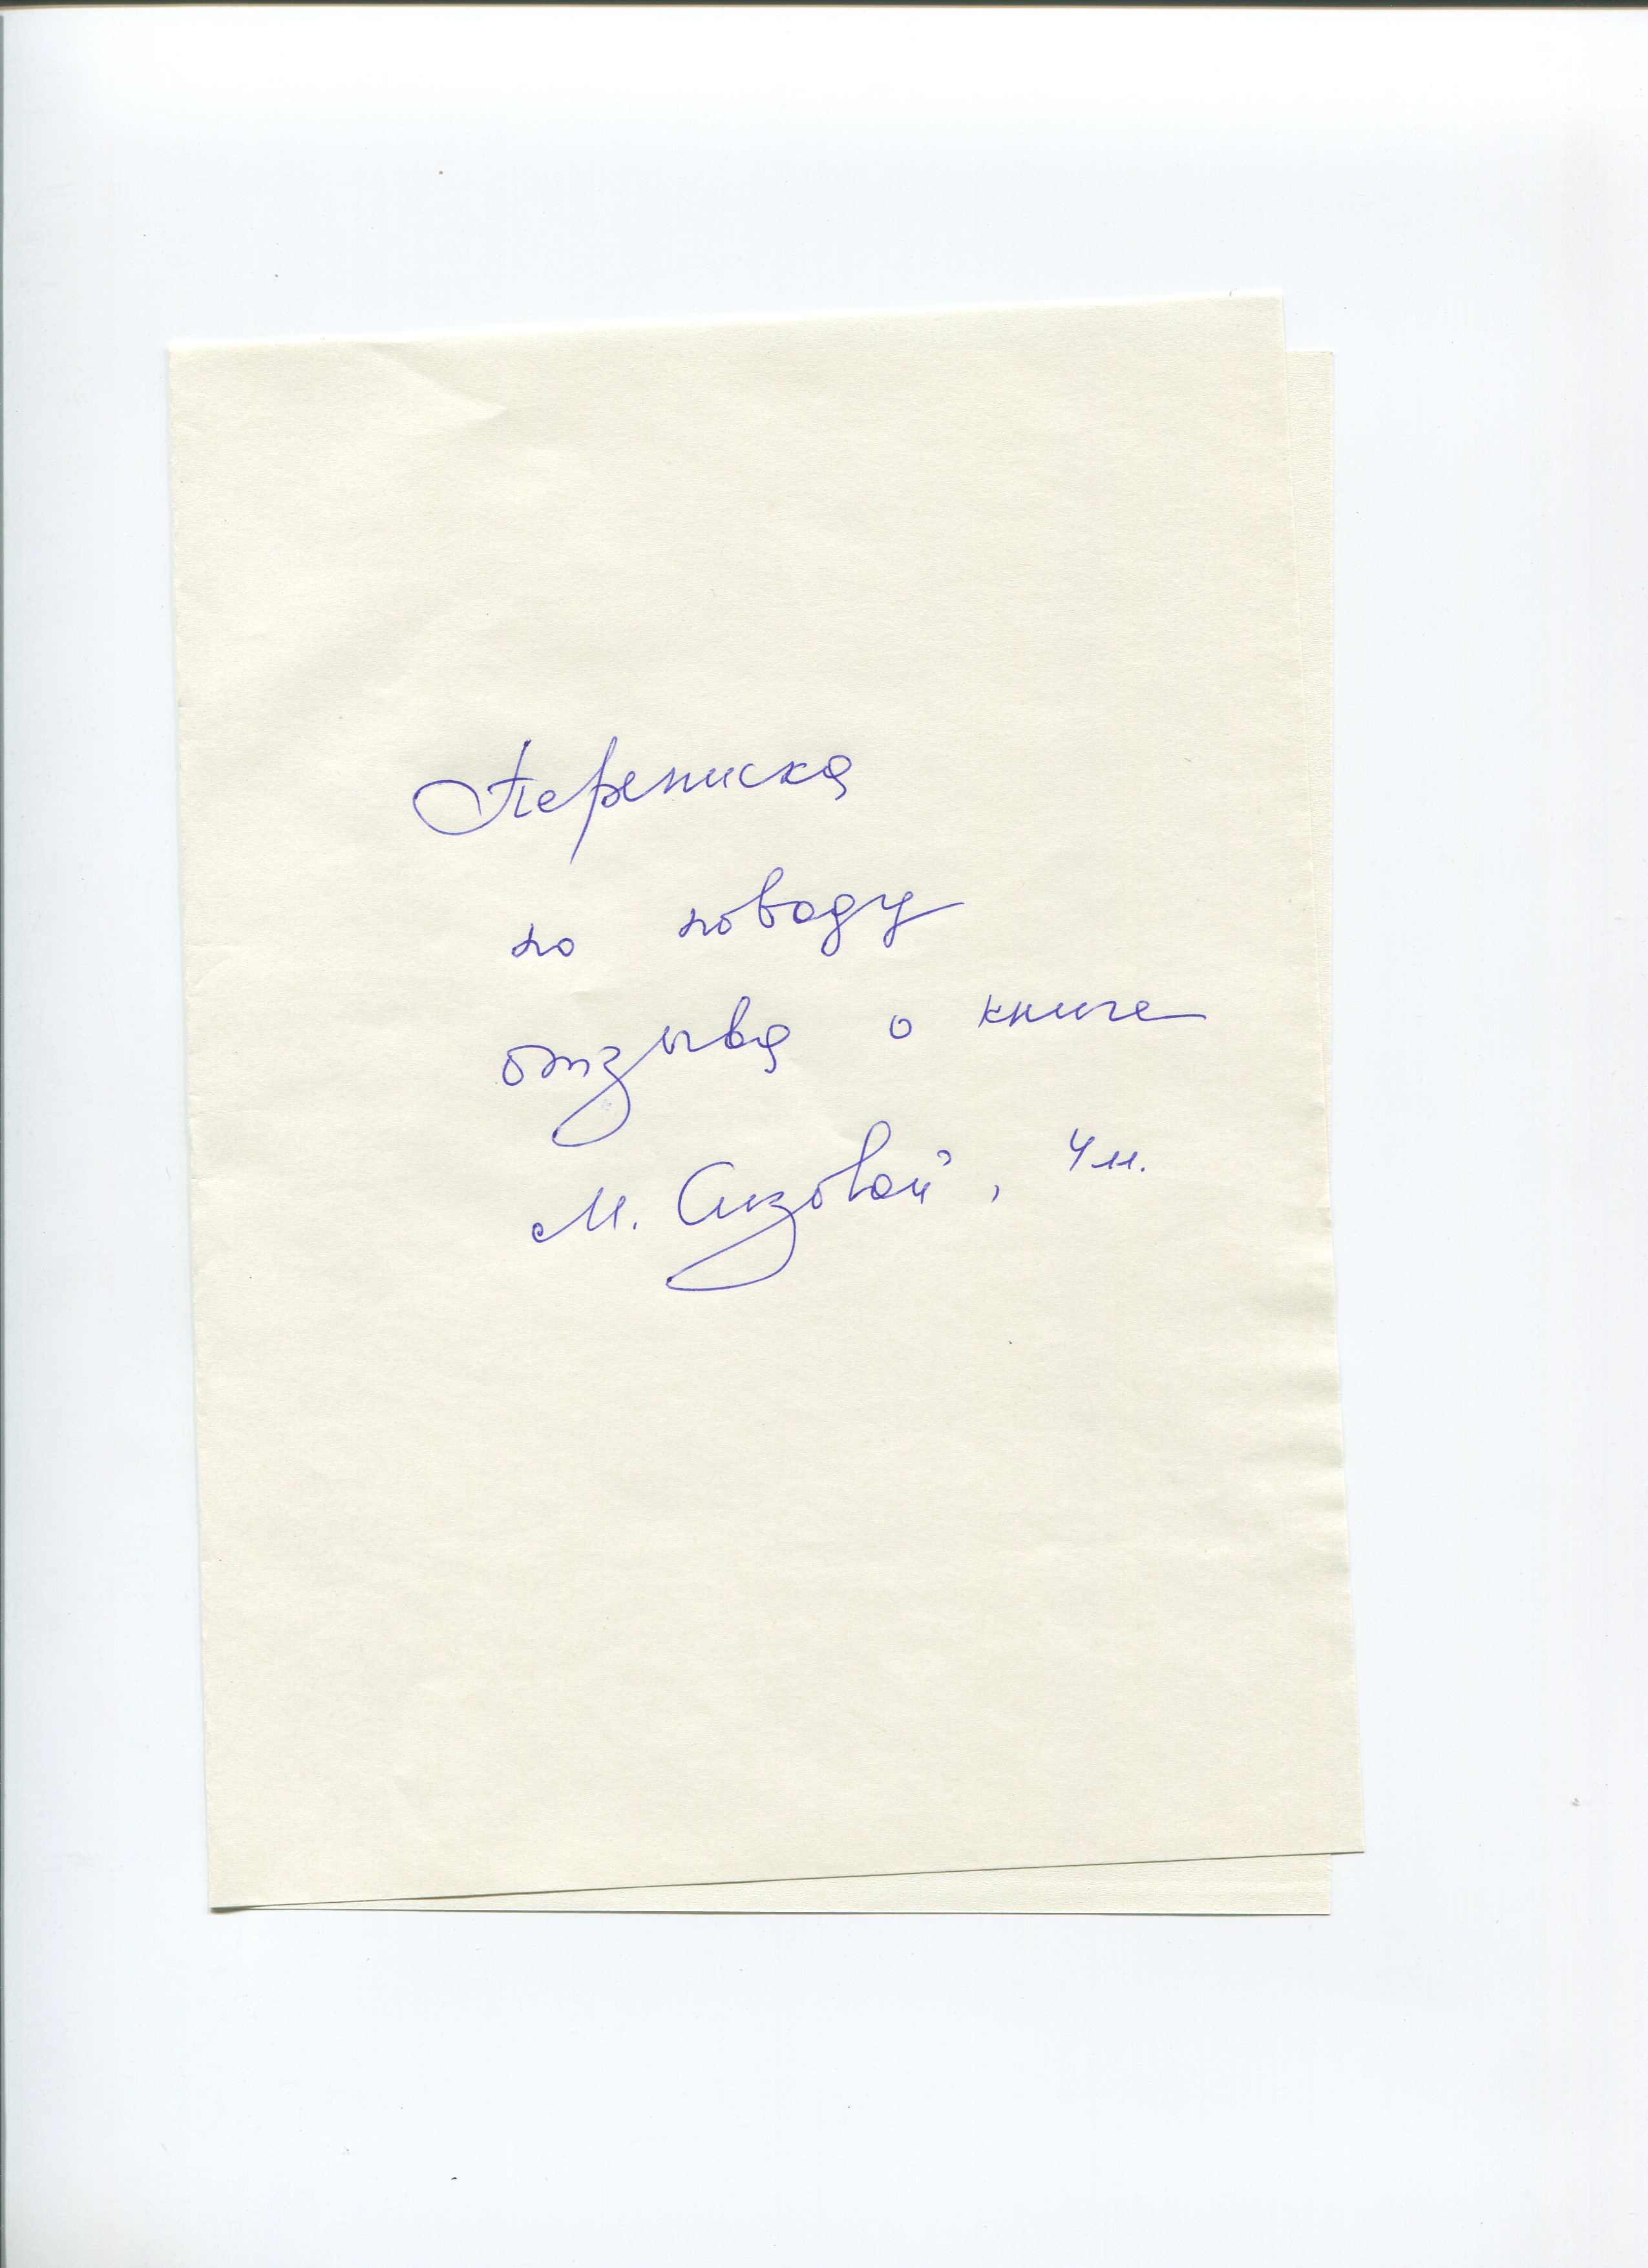 Переписка
по поводу
отзыва о книге
М. Сизовой, 4 л.